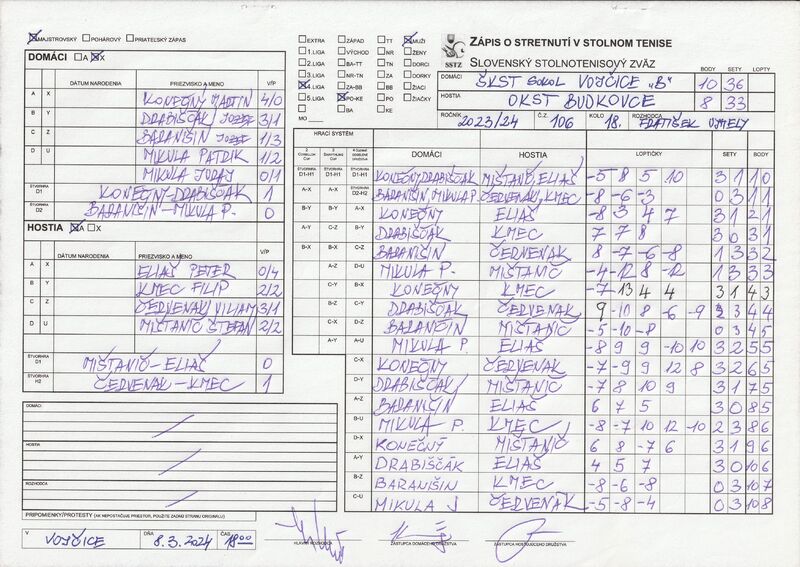 ☒ MAJSTROVSKÝ ☐ POHÁROVÝ ☐ PRIATEĽSKÝ ZÁPAS
DOMÁCI ☐ A ☒ X
DÁTUM NARODENIA PRIEZVISKO A MENO V/P
A X KONEČNÝ MARTIN 4/0
B Y DRABIŠČÁK JOZEF 3/1
C Z BARANIŠIN JOZEF 1/3
D U MIKULA PATRIK 1/2
MIKULA JURAJ 0/1
ŠTVORHRA D1 KONEČNÝ-DRABIŠČÁK 1
ŠTVORHRA D2 BARANIŠIN-MIKULA P. 0
HOSTIA ☒ A ☐ X
DÁTUM NARODENIA PRIEZVISKO A MENO V/P
A X ELIAŠ PETER 0/4
B Y KMEC FILIP 2/2
C Z ČERVENÁK VILIAM 3/1
D U MIŠTANIČ ŠTEFAN 2/2
ŠTVORHRA D1 MIŠTANIČ-ELIAŠ 0
ŠTVORHRA H2 ČERVENÁK-KMEC 1
DOMÁCI:
HOSTIA:
ROZHODCA:
PRIPOMIENKY/PROTESTY (AK NEPOSTAČUJE PRIESTOR, POUŽITE ZADNÚ STRANU ORIGINÁLU)
V VOJČICE DŇA 8.3.2024 ČAS 18⁰⁰
☐ EXTRA ☐ ZÁPAD ☐ TT ☒ MUŽI
☐ 1.LIGA ☐ VÝCHOD ☐ NR ☐ ŽENY
☐ 2.LIGA ☐ BA-TT ☐ TN ☐ DORCI
☐ 3.LIGA ☐ NR-TN ☐ ZA ☐ DORKY
☒ 4.LIGA ☐ ZA-BB ☐ BB ☐ ŽIACI
☐ 5.LIGA ☒ PO-KE ☐ PO ☐ ŽIAČKY
☐ BA ☐ KE
MO
SSTZ
ZÁPIS O STRETNUTÍ V STOLNOM TENISE
SLOVENSKÝ STOLNOTENISOVÝ ZVÄZ
BODY SETY LOPTY
DOMÁCI ŠKST SOKOL VOJČICE „B" 10 36
HOSTIA OKST BUDKOVCE 8 33
ROČNÍK 2023/24 Č.Z. 106 KOLO 18. ROZHODCA
HRACÍ SYSTÉM
DOMÁCI HOSTIA LOPTIČKY SETY BODY
ŠTVORHRA D1-H1 ŠTVORHRA D1-H1 ŠTVORHRA D1-H1 KONEČNÝ, DRABIŠČÁK MIŠTANIČ, ELIAŠ -5 8 5 10 3 1 1 0
A-X A-X ŠTVORHRA D2-H2 BARANIŠIN, MIKULA P. ČERVENÁK, KMEC -8 -6 -3 0 3 1 1
B-Y B-Y A-X KONEČNÝ ELIAŠ -8 3 4 7 3 1 2 1
A-Y C-Z B-Y DRABIŠČÁK KMEC 7 7 8 3 0 3 1
B-X B-X C-Z BARANIŠIN ČERVENÁK 8 -7 -6 -8 1 3 3 2
A-Z D-U MIKULA P. MIŠTANIČ -4 -12 8 -12 1 3 3 3
C-Y B-X KONEČNÝ KMEC -7 13 4 4 3 1 4 3
B-Z C-Y DRABIŠČÁK ČERVENÁK 9 -10 8 -6 -9 2 3 4 4
C-X D-Z BARANIŠIN MIŠTANIČ -5 -10 -8 0 3 4 5
A-Y A-U MIKULA P. ELIAŠ -8 9 9 -10 10 3 2 5 5
C-X KONEČNÝ ČERVENÁK -7 -9 9 12 8 3 2 6 5
D-Y DRABIŠČÁK MIŠTANIČ -7 8 10 9 3 1 7 5
A-Z BARANIŠIN ELIAŠ 6 7 5 3 0 8 5
B-U MIKULA P. KMEC -8 -7 10 12 -10 2 3 8 6
D-X KONEČNÝ MIŠTANIČ 6 8 -7 6 3 1 9 6
A-Y DRABIŠČÁK ELIAŠ 4 5 7 3 0 10 6
B-Z BARANIŠIN KMEC -8 -6 -8 0 3 10 7
C-U MIKULA J ČERVENÁK -5 -8 -4 0 3 10 8
HLAVNÝ ROZHODCA ZÁSTUPCA DOMÁCEHO DRUŽSTVA ZÁSTUPCA HOSŤUJÚCEHO DRUŽSTVA